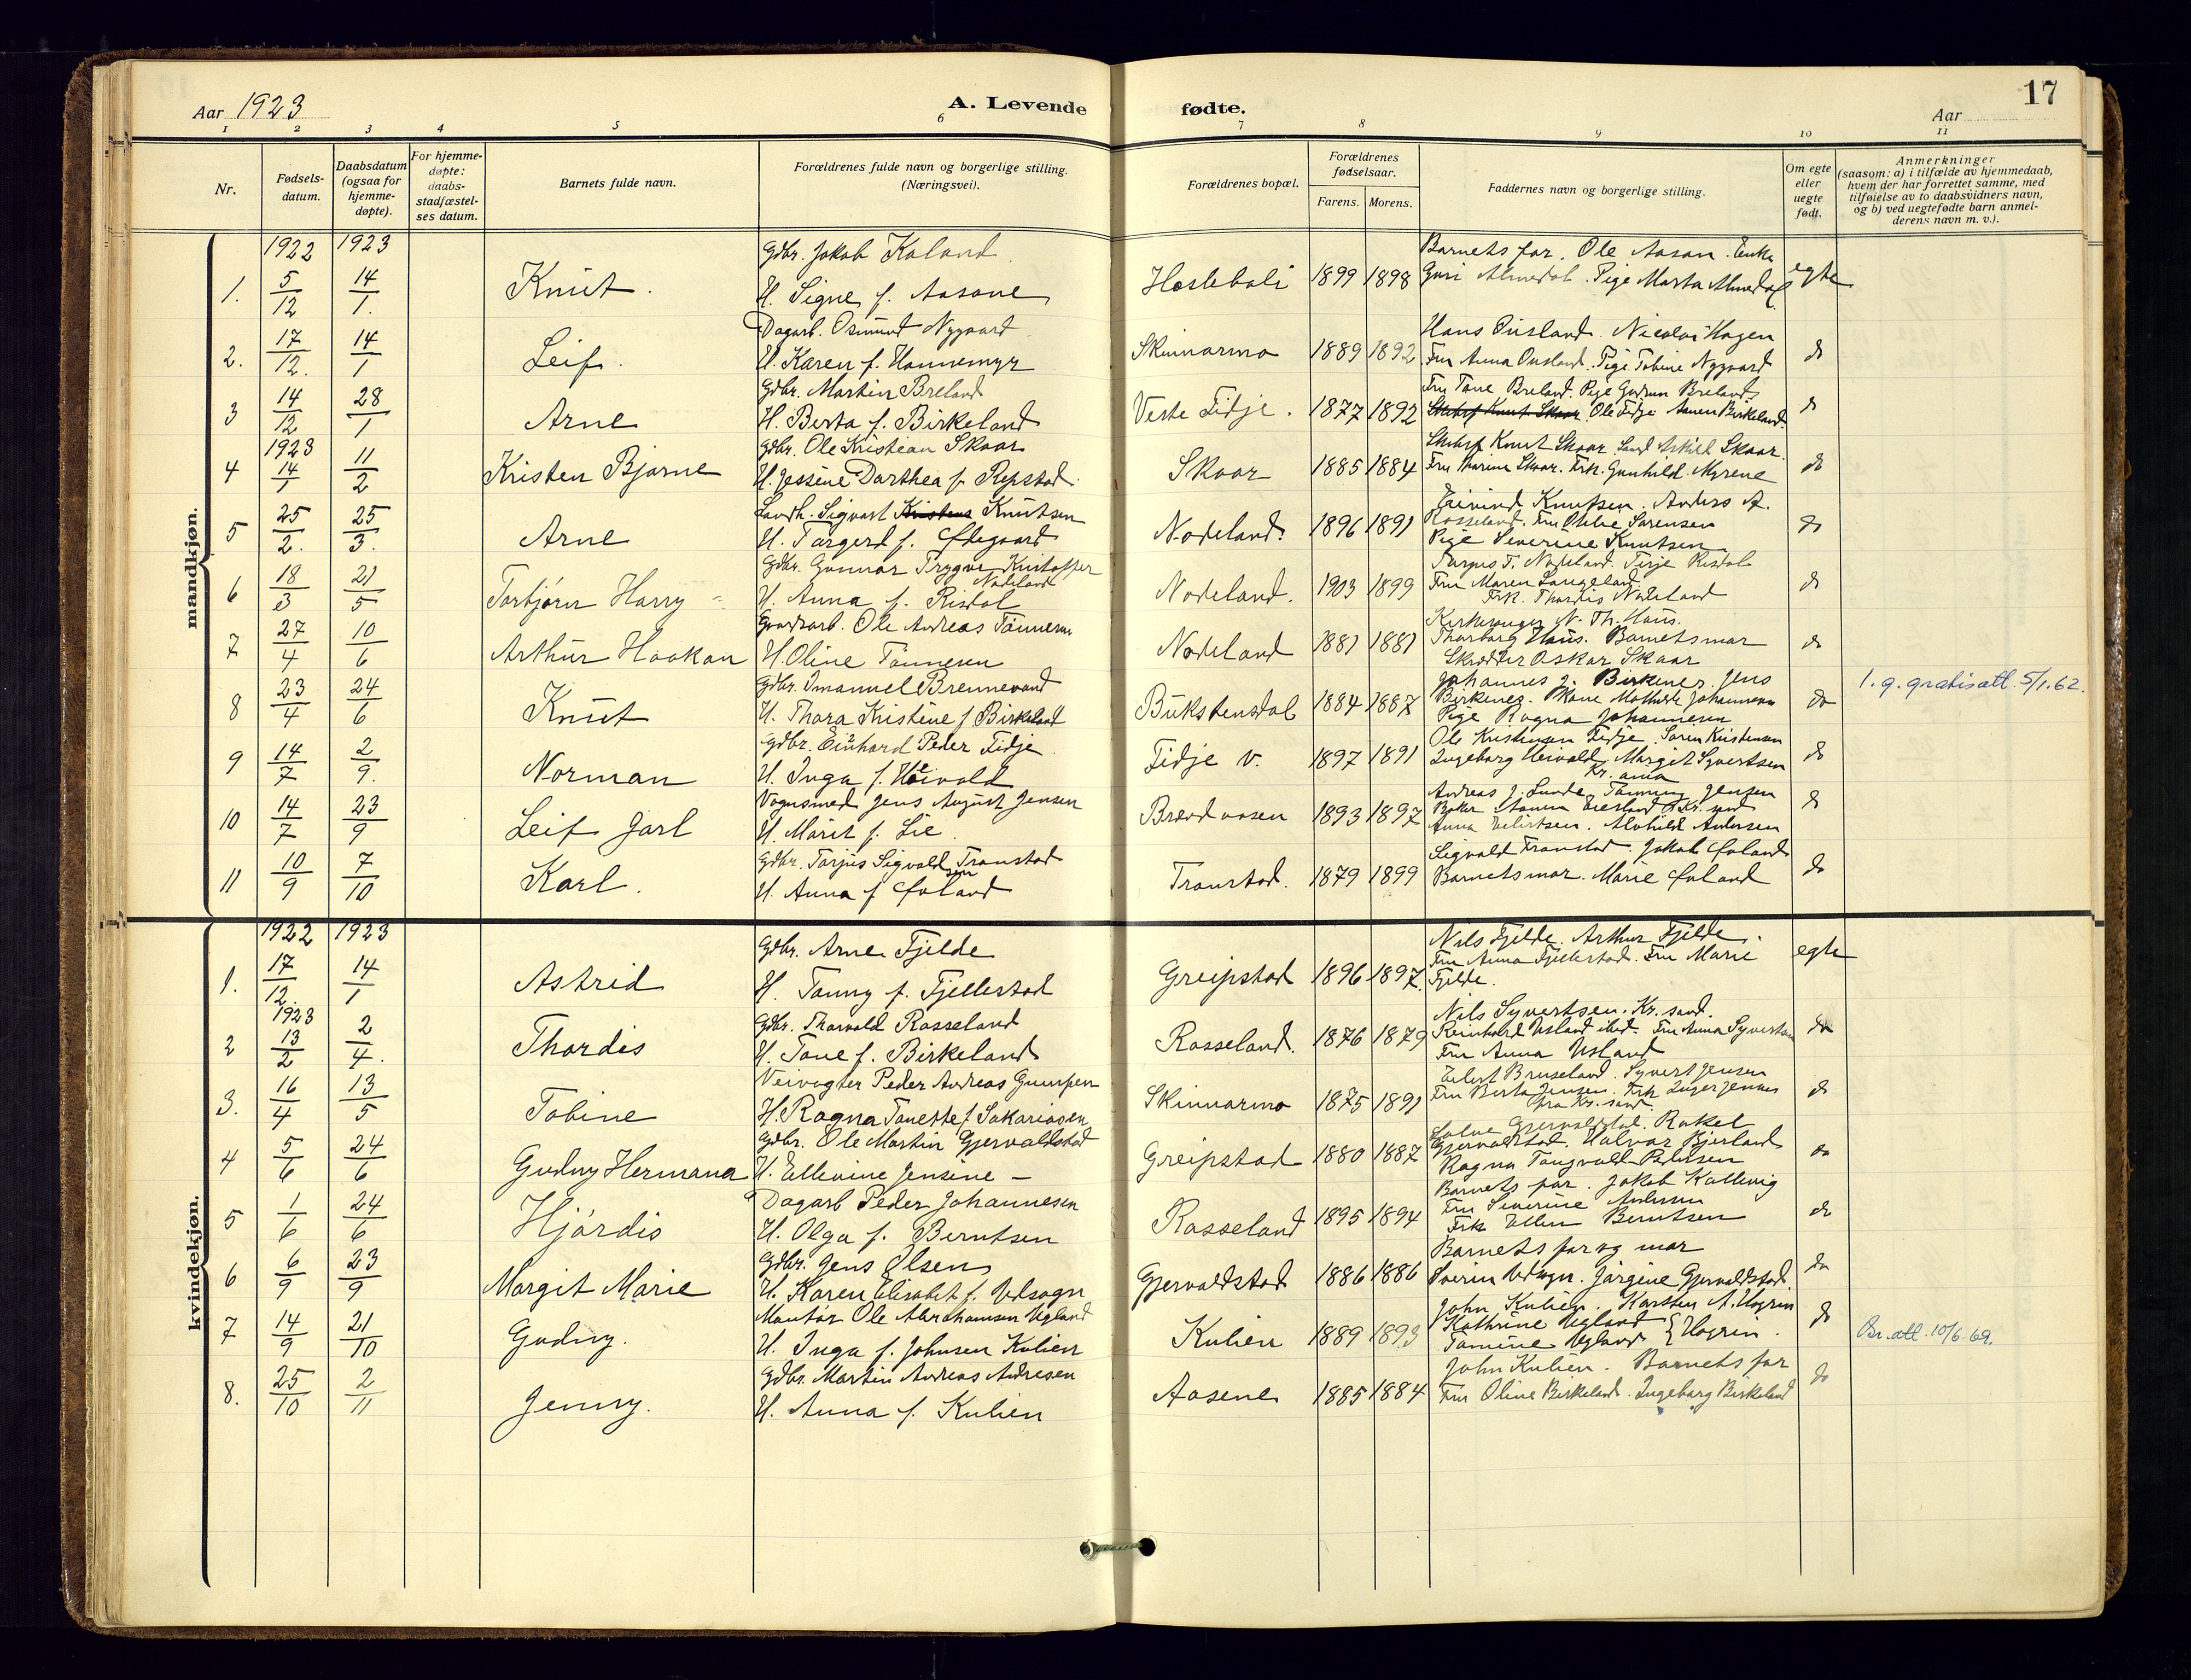 Aar 1923
A. Levende fødte.
17
Aar
1 2 3 4 5 6 7 8 9 10 11
Nr.
Fødsels-
datum.
Daabsdatum
(ogsaa for
hjemme-
døpte).
For hjemme-
døpte:
daabs-
stadfæstel-
ses datum.
Barnets fulde navn.
Forældrenes fulde navn og borgerlige stilling.
(Næringsvei).
Forældrenes bopæl.
Forældrenes
fødselsaar.
Farens. Morens.
Faddernes navn og borgerlige stilling.
Om egte
eller
uegte
født.
Anmerkninger
(saasom: a) i tilfælde av hjemmedaab,
hvem der har forrettet samme, med
tilføielse av to daabsvidners navn,
og b) ved uegtefødte barn anmel-
derens navn m. v.).
mandkjøn.
1922 1923
1. 5/12 14/1. Knut.
Gdbr. Jakob Kaland.
H. Signe f. Aasane
1899 1898
Barnets far. Ole Aasan. Enke
Guri Almedal. Pige Marta Almedal
egte
2. 17/12. 14/1 Leif.
Dagarb. Osmund Nygaard
H. Karen f. Hannemyr
Skinnarmo 1889 1892
Hans Ousland. Nicolai Hagen
Fru Anna Ousland. Pige Tobine Nygaard
do
3 14/12 28/1 Arne
Gdbr. Martin Breland
H. Berta f. Birkeland
Veste Tidje. 1877 1892
Fru Tone Breland. Pige Gudrun Breland
Ole Tidje Birkeland.
do
1923
4 14/1 11/2 Kristen Bjarne
Gdbr. Ole Kristian Skaar
H. Jessine Darthea f. Repstad.
Skaar 1885 1884
Knut Skaar Skaar.
Fru Skaar. Frk. Gunhild Myrene
do
5 25/2. 25/3. Arne
Sigvart Knutsen
H. Targerd f. Ødegaard
Nodeland. 1896 1891
Eivind Knutsen. Anders A.
Rosseland. Fru Sørensen
Pige Severine Knutsen
do
6 18/3 21/5 Torbjørn Harry
Gdbr. Gunnar Trygve Kristoffer
Nodeland
H. Anna f. Risdal
Nodeland. 1903 1899
Targus T. Nodeland. Terje Risdal
Fru Maren Langeland.
Frk. Thordis Nodeland
do
7 27/4 10/6 Arthur Haakon
Ole Andreas Tønnesen
H. Oline Tønnesen
Nodeland 1881 1881
Kirkesanger N. Th. Haus.
Thorborg Haus. Barnets mor
Skrædder Oskar Skaar
do
8 23/4 24/6 Knut
Gdbr. Imanuel Brennevand
H. Thora Kristine f Birkeland
Bukstensdal 1884 1887
Johannes J. Birkenes. Jens
Birkenes. Kone Mathilde Johannesen
Pige Ragna Johannesen
do
1. g. gratis att. 5/1.62.
9 14/7 2/9. Norman
Gdbr. Einhard Peder Tidje
H. Inga f. Heivold
Tidje v. 1897 1891
Ole Kristensen Tidje. Søren Kristensen
Ingeborg Heivold. Margit Syvertsen
Kr. ania
do
10 14/7 23/9 Leif Jarl
Vognsmed Jens August Jensen
H. Marit f. Lie.
Brædvasen 1893 1897
Andreas J. Lunde, Jensen
Kr. sand
Anna Eilertsen. Alvhild Andersen
do
11 10/9 7/10 Karl.
Gdbr. Tarjus Sigvaldsen Tronstad
H. Anna f Øvland
Tronstad. 1879 1899
Sigvald Tronstad. Jakob Øvland
Barnets mor. Marie Øvland
do
kvindekjøn.
1922 1923
1. 17/12. 14/1 Astrid
Gdbr. Arne Fjelde
H. Tanny f. Fjellestad
Greipstad 1896 1897.
Nils Fjelde. Arthur Fjelde.
Fru Anna Fjellestad. Fru Marie
Fjelde.
egte
1923
2 13/2 2/4. Thordis
Gdbr. Thorvald Rosseland
H. Tone f. Birkeland
Rosseland. 1876 1879
Nils Syvertsen. Kr. sand.
Reinhard Usland ibid. Fru Anna Syvertsen
Fru Anna Usland
do
3. 16/4 13/5 Tobine
Veivogter Peder Andreas Gumpen
H. Ragna Tanette f Sakariasen
Skinnarmo 1875 1891
Eilert Bruseland. Syvert Jensen
Fru Berta Jensen. Frk Inger Jensen
fra Kr. sand.
do
4 5/6 24/6 Gudny Hermana
Gdbr. Ole Martin Gjervaldstad
H. Ellevine Jensine –
Greipstad 1880 1887
Salve Gjervaldstad. Rakel
Gjervaldstad. Halvar Kjerland
Ragna Tangvald Pedersen
do
5 1/6 24/6 Hjördis
Dagarb Peder Johannesen
H. Olga f. Berntsen
Rosseland 1895 1894
Barnets far. Jakob Kallevig
Fru Severine Andersen
Frk Ellen Berntsen
do
6 6/9 23/9 Margit Marie
Gdbr. Jens Olsen
H. Karen Elisabet f. Vedsogn
Gjervaldstad 1886 1886
Barnets far og mor
Sverin Vedsogn. Jørgine Gjervaldstad
do
7 14/9 21/10 Gudny.
Montør Ole Abrahamsen Ugland
H. Inga f. Johnsen Kulien
Kulien 1889 1893
John Kulien. Karsten A. Hagrin
Kathrine Ugland
Tomine Ugland } Hagrin.
do
Br. att. 10/6.69.
8. 25/10 2/11 Jenny.
Gdbr. Martin Andreas Andresen
H. Anna f. Kulien
Aasene 1885 1884
John Kulien. Barnets far
Fru Oline Birkeland. Ingeborg Birkeland
do